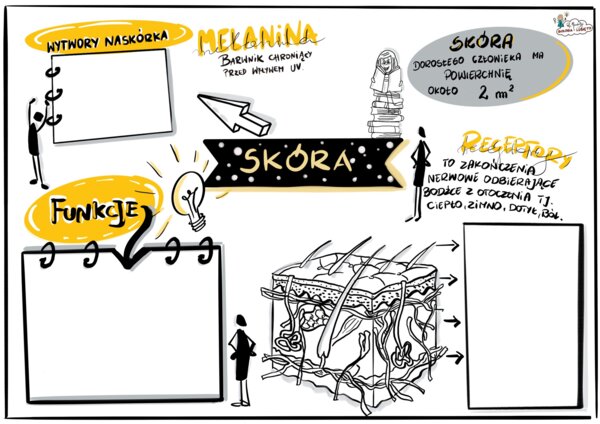 WYTWORY NASKÓRKA
MELANINA
BARWNIK CHRONIĄCY
PRZED WPŁYWEM UV.
SKÓRA
DOROSŁEGO CZŁOWIEKA MA
POWIERZCHNIĘ
OKOŁO 2 m²
SKÓRA
RECEPTORY
TO ZAKOŃCZENIA
NERWOWE ODBIERAJĄCE
BODŹCE Z OTOCZENIA TJ.
CIEPŁO, ZIMNO, DOTYK, BÓL.
FUNKCJE